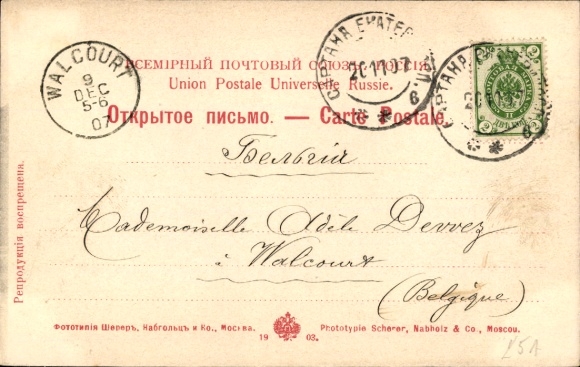 ВСЕМІРНЫЙ ПОЧТОВЫЙ СОЮЗЪ. РОССІЯ.
Union Postale Universelle Russie.
Открытое письмо. — Carte Postale.
WALCOURT
9
DEC
5-6
07
СЕРТАНА ЕКАТЕР
20 11 07
6
2
2
Бельгія
Mademoiselle Adèle Devvez
à Walcourt
(Belgique)
Репродукція воспрещена.
Фототипія Шереръ, Набгольцъ и Ко., Москва.
19 03.
Phototypie Scherer, Nabholz & Co., Moscou.